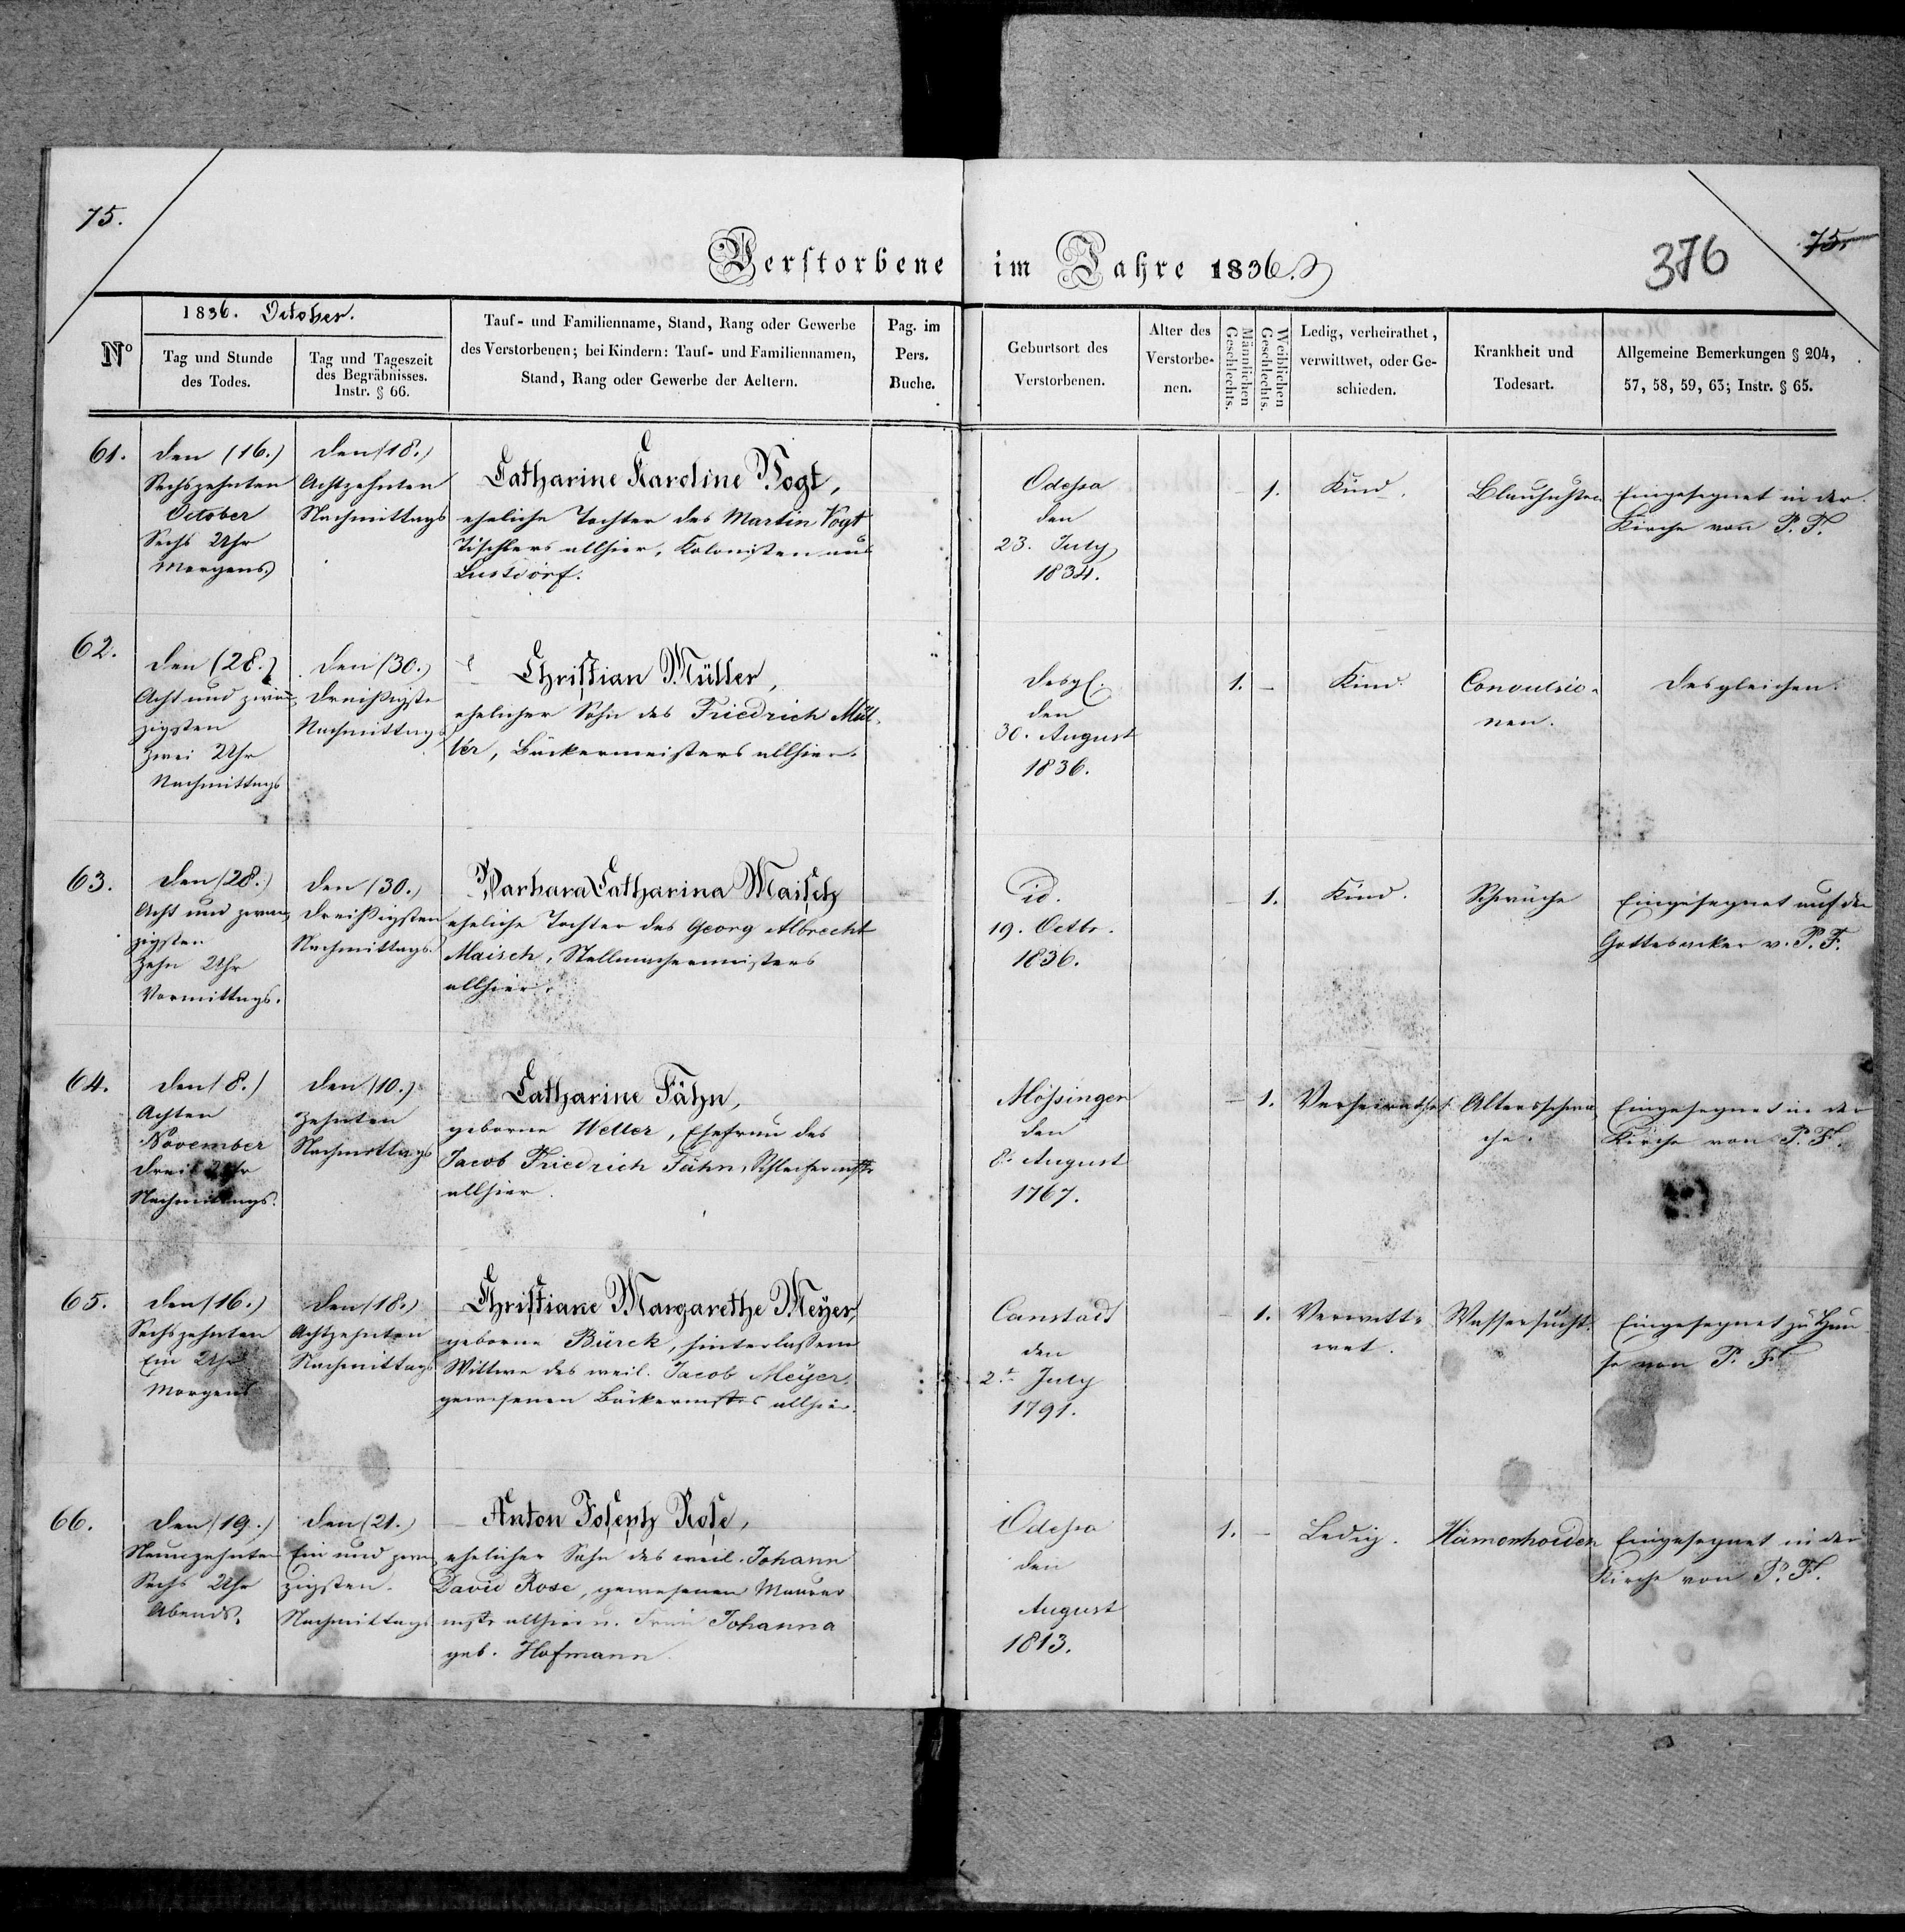 75.
Verstorbene im Jahre 1836.
376
75.
1836. October.
No
Tag und Stunde
des Todes.
Tag und Tageszeit
des Begräbnisses.
Instr. § 66.
Tauf- und Familienname, Stand, Rang oder Gewerbe
des Verstorbenen; bei Kindern: Tauf- und Familiennamen,
Stand, Rang oder Gewerbe der Aeltern.
Pag. im
Pers.
Buche.
Geburtsort des
Verstorbenen.
Alter des
Verstorbe-
nen.
Männlichen
Geschlechts.
Weiblichen
Geschlechts.
Ledig, verheirathet,
verwittwet, oder Ge-
schieden.
Krankheit und
Todesart.
Allgemeine Bemerkungen § 204,
57, 58, 59, 63; Instr. § 65.
61.
den (16.)
Sechszehnten
October
Sechs Uhr
Morgens
den (18.)
Achtzehnten
Nachmittags
Catharine Karoline Vogt,
eheliche Tochter des Martin Vogt
Tischlers allhier, Kolonisten aus
Lustdorf.
Odessa
den
23. July
1834.
1.
Kind.
Eingesegnet in der
Kirche von P. F.
62.
den (28.)
Acht und zwan
zigsten
Zwei Uhr
Nachmittags
den (30.)
Dreißigste
Nachmittags
Christian Müller,
ehelicher Sohn des Friedrich Mül
ler, Bäckermeisters allhier.
desgl.
den
30. August
1836.
1. -
Kind.
Convulsio-
nen.
desgleichen.
63.
den (28.)
Acht und zwan
zigsten
Zehn Uhr
Vormittags.
den (30.)
Dreißigsten
Nachmittags.
Barbara Catharina Maisch
eheliche Tochter des Georg Albrecht
Maisch, Stellmachermeisters
allhier.
id.
19. Octbr.
1836.
- 1.
Kind.
Schwäche
Eingesegnet auf dem
Gottesacker v. P. F.
64.
den (8.)
Achten
November
Drei Uhr
Nachmittags.
den (10.)
Zehnten
Nachmittags
Catharine Fähn,
geborne Weller, Ehefrau des
Jacob Friedrich Fähn,
allhier.
Mössingen
den
8. August
1767.
- 1.
Verheirathet
Altersschwä
che.
Eingesegnet in der
Kirche von P. F.
65.
den (16.)
Sechszehnten
Ein Uhr
Morgens
den (18.)
Achtzehnten
Nachmittags
Christiane Margarethe Meyer,
geborne Bürck, hinterlassene
Wittwe des weil. Jacob Meyer.
gewesenen Bäckermstrs allhier.
Canstadt
den
2t July
1791.
- 1.
Verwitt-
wet.
Wassersucht.
Eingesegnet zu Hau
se von P. F.
66.
den (19.)
Neunzehnten
Sechs Uhr
Abends.
den (21.)
Ein und zwan
zigsten.
Nachmittags
Anton Rose,
ehelicher Sohn des weil. Johann
David Rose, gewesenen Maurer
mstr allhier u. Frau Johanna
geb. Hofmann.
Odessa
den
August
1813.
1. -
Ledig.
Hämorrhoiden
Eingesegnet in der
Kirche von P. F.